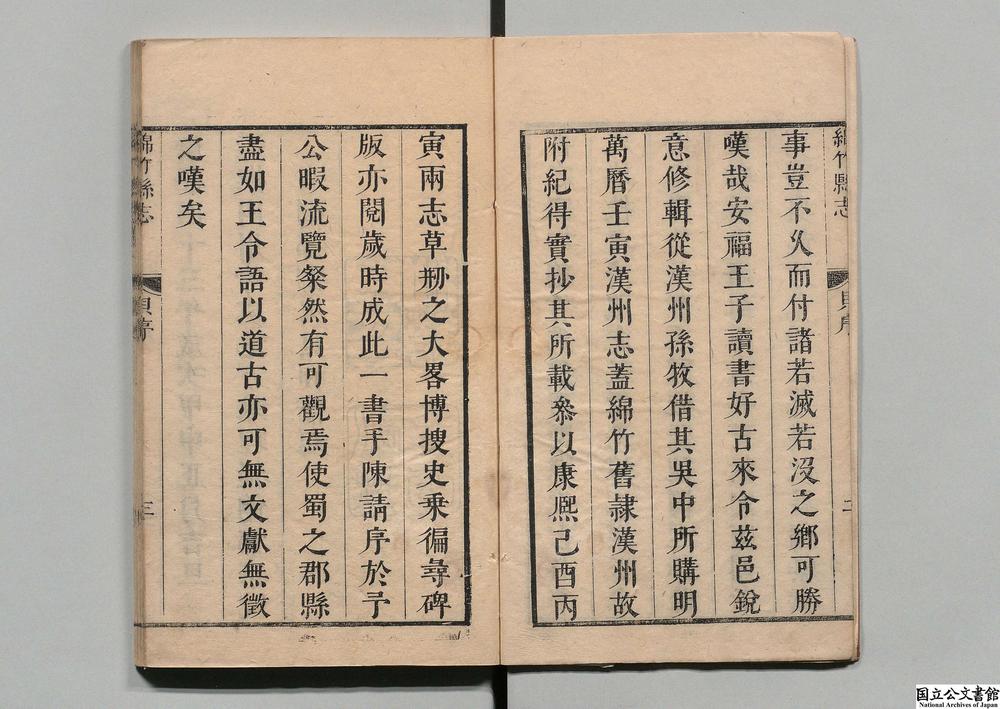 綿竹縣志
事豈不久而付諸若滅若沒之鄉可勝
嘆哉安福王子讀書好古來令茲邑銳
意修輯從漢州孫牧借其吳中所購明
萬曆壬寅漢州志蓋綿竹舊隷漢州故
附紀得實抄其所載叅以康熈己酉丙
寅兩志草刱之大畧博搜史乘徧尋碑
版亦閱歲時成此一書手陳請序於予
公暇流覽粲然有可觀焉使蜀之郡縣
盡如王令語以道古亦可無文獻無徵
之嘆矣
綿竹縣志
序
三
国立公文書館
National Archives of Japan